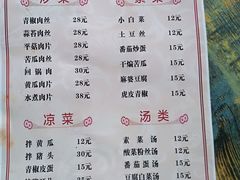 青椒肉丝 28元
蒜苔肉丝 28元
平菇肉片 28元
苦瓜肉丝 28元
回锅肉 30元
黄瓜肉片 28元
水煮肉片 38元
小白菜 12元
土豆丝 12元
番茄炒蛋 15元
干煸苦瓜 15元
麻婆豆腐 12元
虎皮青椒 15元
凉菜
拌黄瓜 12元
拌猪头 30元
青椒皮蛋 15元
汤类
素菜汤 12元
酸菜粉丝汤 12元
番茄蛋汤 15元
豆腐白菜汤 15元